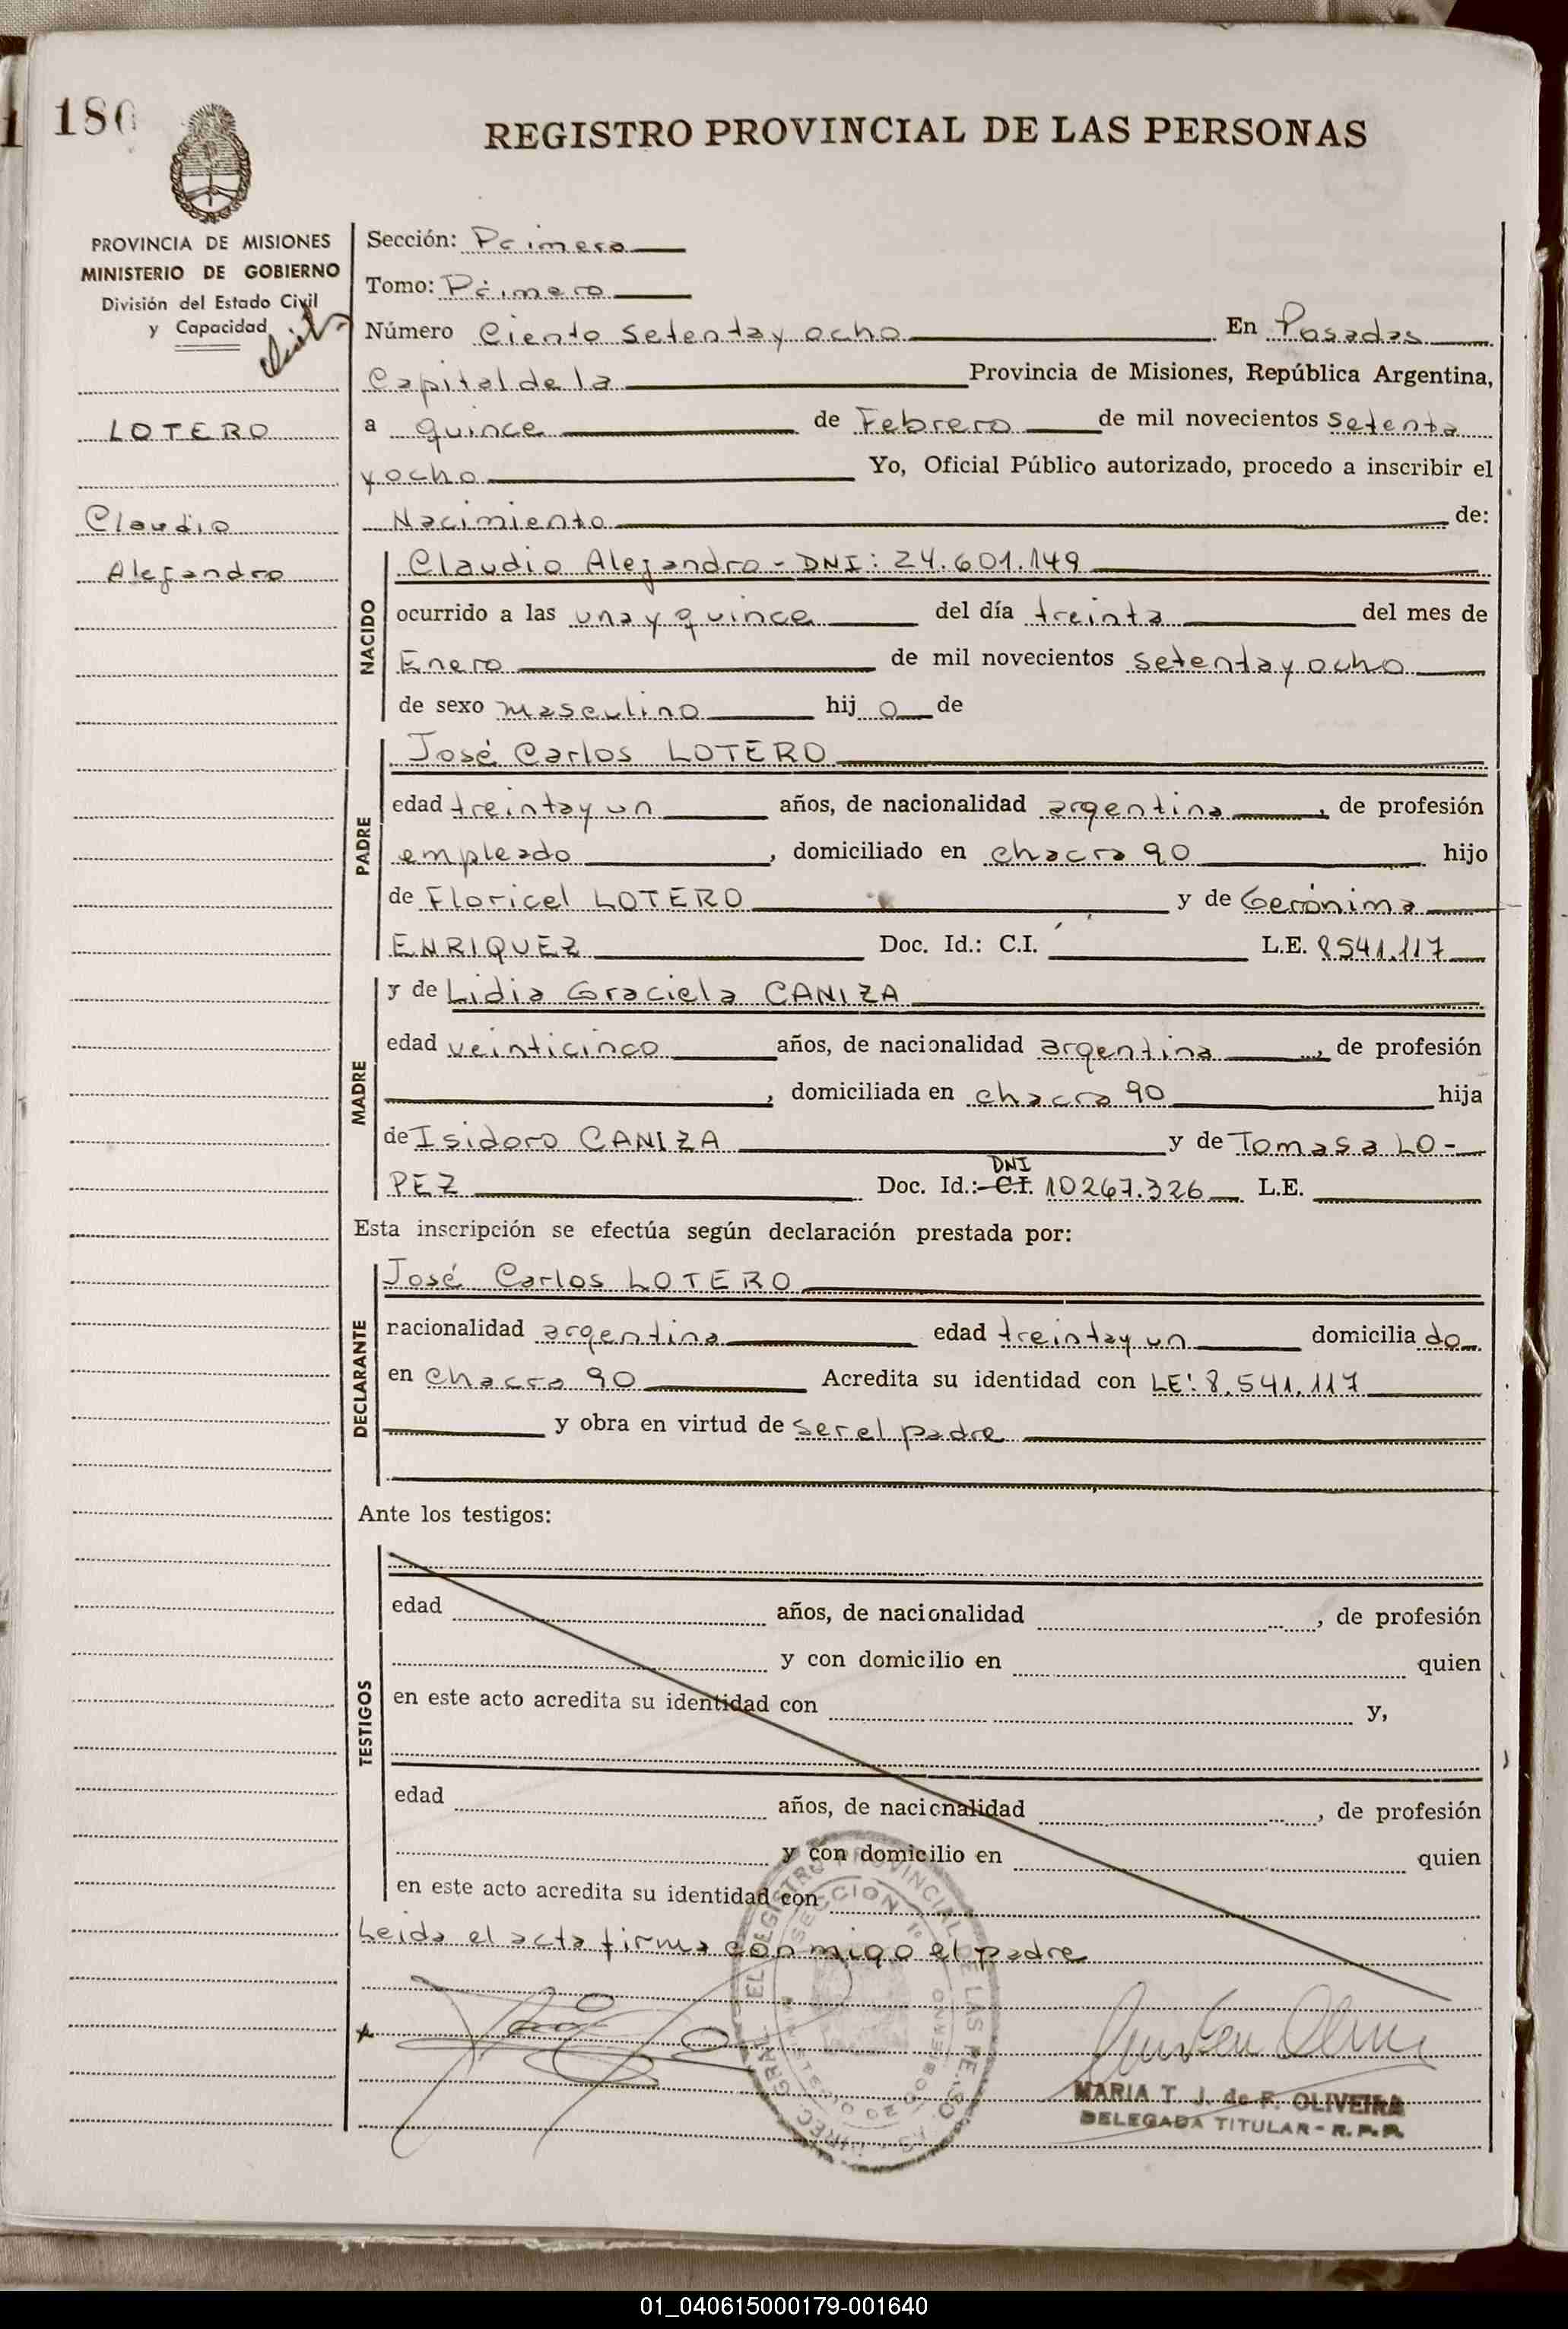 180
REGISTRO PROVINCIAL DE LAS PERSONAS
PROVINCIA DE MISIONES
MINISTERIO DE GOBIERNO
División del Estado Civil
y Capacidad
LOTERO
Claudio
Alejandro
Sección: Primera
Tomo: Primero
Número Ciento setenta y ocho En Posadas
Capital de la Provincia de Misiones, República Argentina,
a quince de Febrero de mil novecientos setenta
y ocho Yo, Oficial Público autorizado, procedo a inscribir el
Nacimiento de:
NACIDO
Claudio Alejandro - DNI: 24.601.149
ocurrido a las una y quince del día treinta del mes de
Enero de mil novecientos setenta y ocho
de sexo masculino hijo de
PADRE
José Carlos LOTERO
edad treinta y un años, de nacionalidad argentina, de profesión
empleado, domiciliado en chacra 90 hijo
de Floricel LOTERO y de Gerónima
ENRIQUEZ Doc. Id.: C.I. L.E. 8541.117
MADRE
y de Lidia Graciela CANIZA
edad veinticinco años, de nacionalidad argentina, de profesión
, domiciliada en chacra 90 hija
de Isidoro CANIZA y de Tomasa LO-
DNI
PEZ Doc. Id.: C.I. 10267.326 L.E.
Esta inscripción se efectúa según declaración prestada por:
DECLARANTE
José Carlos LOTERO
nacionalidad argentina edad treinta y un domiciliado
en chacra 90 Acredita su identidad con LE: 8.541.117
y obra en virtud de ser el padre
Ante los testigos:
TESTIGOS
edad años, de nacionalidad , de profesión
y con domicilio en quien
en este acto acredita su identidad con y,
edad años, de nacionalidad , de profesión
y con domicilio en quien
en este acto acredita su identidad con
Leida el acta firma conmigo el padre
DIREC. GRAL. EL REGISTRO PROVINCIAL DE LAS PERSONAS
SECCION 1º
MARIA T. J. de F. OLIVEIRA
DELEGADA TITULAR - R.P.P.
01_040615000179-001640